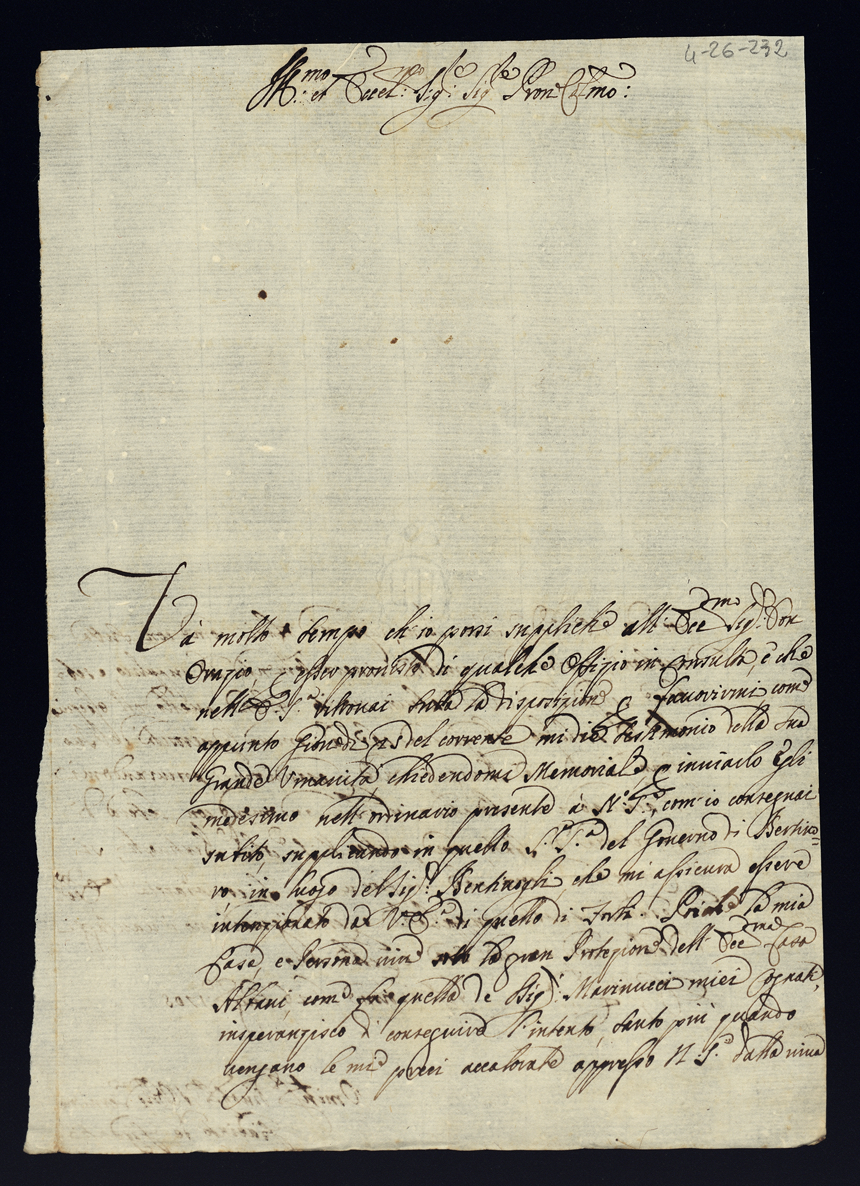 4-26-232
Ill.mo et Eccel.mo Sig.re Sig.re Pron Col.mo:
Và molto tempo ch'io porsi suppliche all'Ecc.mo Sig.r Don
Orazio, p esser provisto di qualche Offizio in Consulta, è che
nell'E. S.a ritrovai tutta la disposizione p favorirmi come
appunto Giovedì del corrente mi diè testimonio della sua
Grande Umanità, chiedendomi Memoriale p inviarlo Egli
medesimo nell'ordinario presente à N.S.re, com'io consegnai
subito, supplicando in quello N.S.re del Governo di Bertino=
ro, in luogo del Sig.r Bentivogli che mi assicura essere
intenzionato da V.E. di quello di Forlì. Poiche la mia
Casa, e Persona vive sotto la gran Protezione dell'Ecc.ma Casa
Albani, come fa quella de Sig.ri Marinucci miei Cognati,
insperanzisco di conseguire l'intento, tanto più quando
vengano le mie preci accalorate appresso N.S.re dalla viva